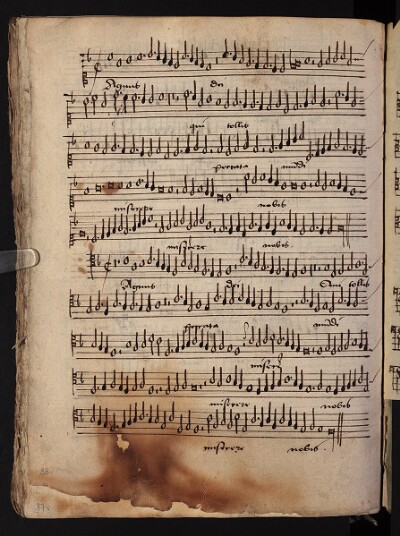 Agnus dei
qui tollis
peccata mundi
miserere nobis
miserere nobis.
Agnus dei Qui tollis
peccata mundi
miserere
miserere nobis
miserere nobis.